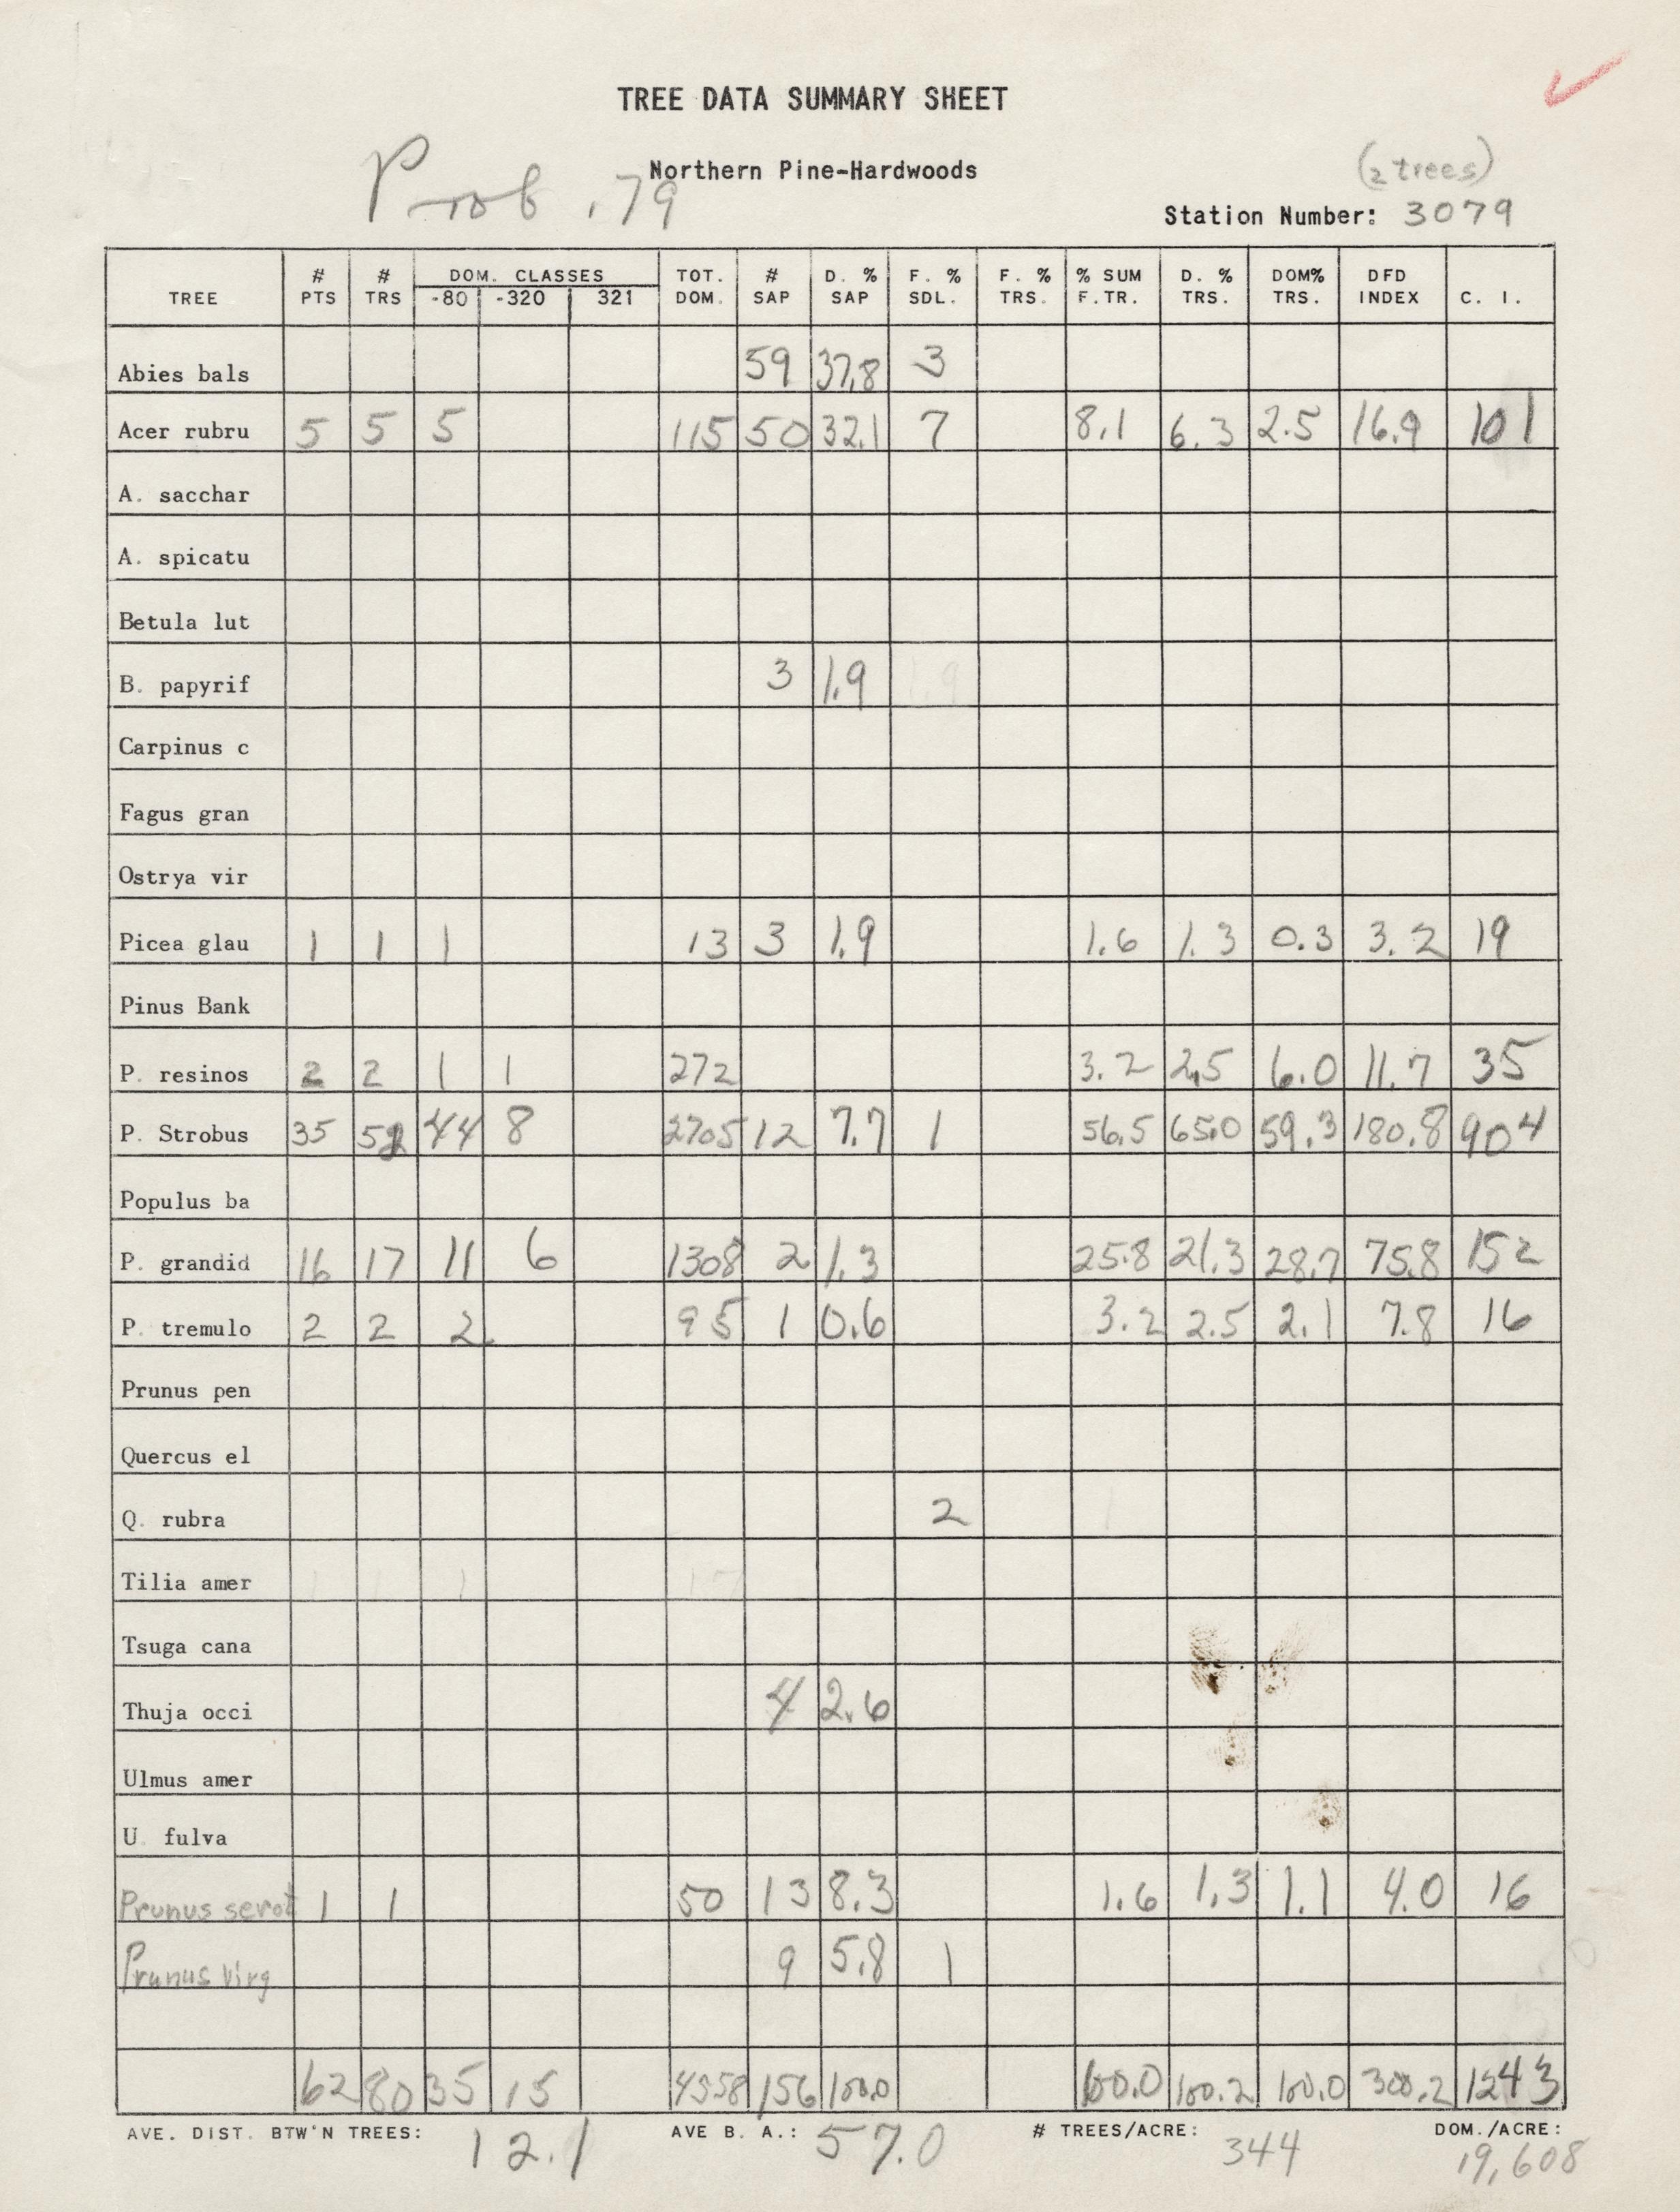 TREE DATA SUMMARY SHEET
Northern Pine-Hardwoods
Prob .79
(2 trees)
Station Number: 3079
TREE # PTS # TRS DOM. CLASSES -80 -320 321 TOT. DOM. # SAP D. % SAP F. % SDL. F. % TRS. % SUM F.TR. D. % TRS. DOM% TRS. DFD INDEX C. I.
Abies bals 59 37.8 3
Acer rubru 5 5 5 115 50 32.1 7 8.1 6.3 2.5 16.9 101
A. sacchar
A. spicatu
Betula lut
B. papyrif 3 1.9
Carpinus c
Fagus gran
Ostrya vir
Picea glau 1 1 1 13 3 1.9 1.6 1.3 0.3 3.2 19
Pinus Bank
P. resinos 2 2 1 1 272 3.2 2.5 6.0 11.7 35
P. Strobus 35 52 44 8 2705 12 7.7 1 56.5 65.0 59.3 180.8 904
Populus ba
P. grandid 16 17 11 6 1308 2 1.3 25.8 21.3 28.7 75.8 152
P. tremulo 2 2 2 95 1 0.6 3.2 2.5 2.1 7.8 16
Prunus pen
Quercus el
Q. rubra 2
Tilia amer
Tsuga cana
Thuja occi 4 2.6
Ulmus amer
U. fulva
Prunus serot 1 1 50 13 8.3 1.6 1.3 1.1 4.0 16
Prunus virg 9 5.8 1
62 80 35 15 4558 156 100.0 100.0 100.2 100.0 300.2 1243
AVE. DIST. BTW'N TREES: 12.1 AVE B. A.: 57.0 # TREES/ACRE: 344 DOM./ACRE: 19,608